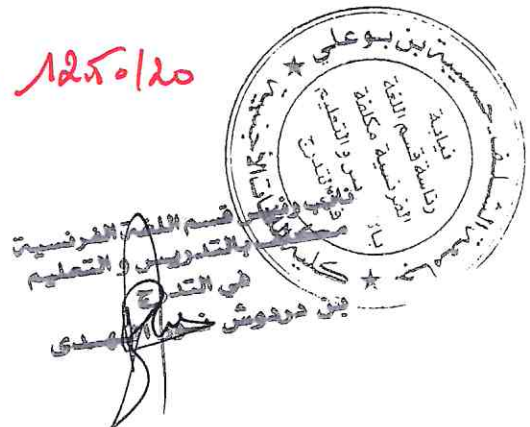 12.50/20
جامعة الشلف حسيبة بن بوعلي
كلية
نيابة
رئاسة قسم اللغة
الفرنسية مكلفة
بالتدريس والتعليم
في التدرج
نائب رئيس قسم اللغة الفرنسية
مكلف بالتدريس و التعليم
في التدرج
بن دردوش